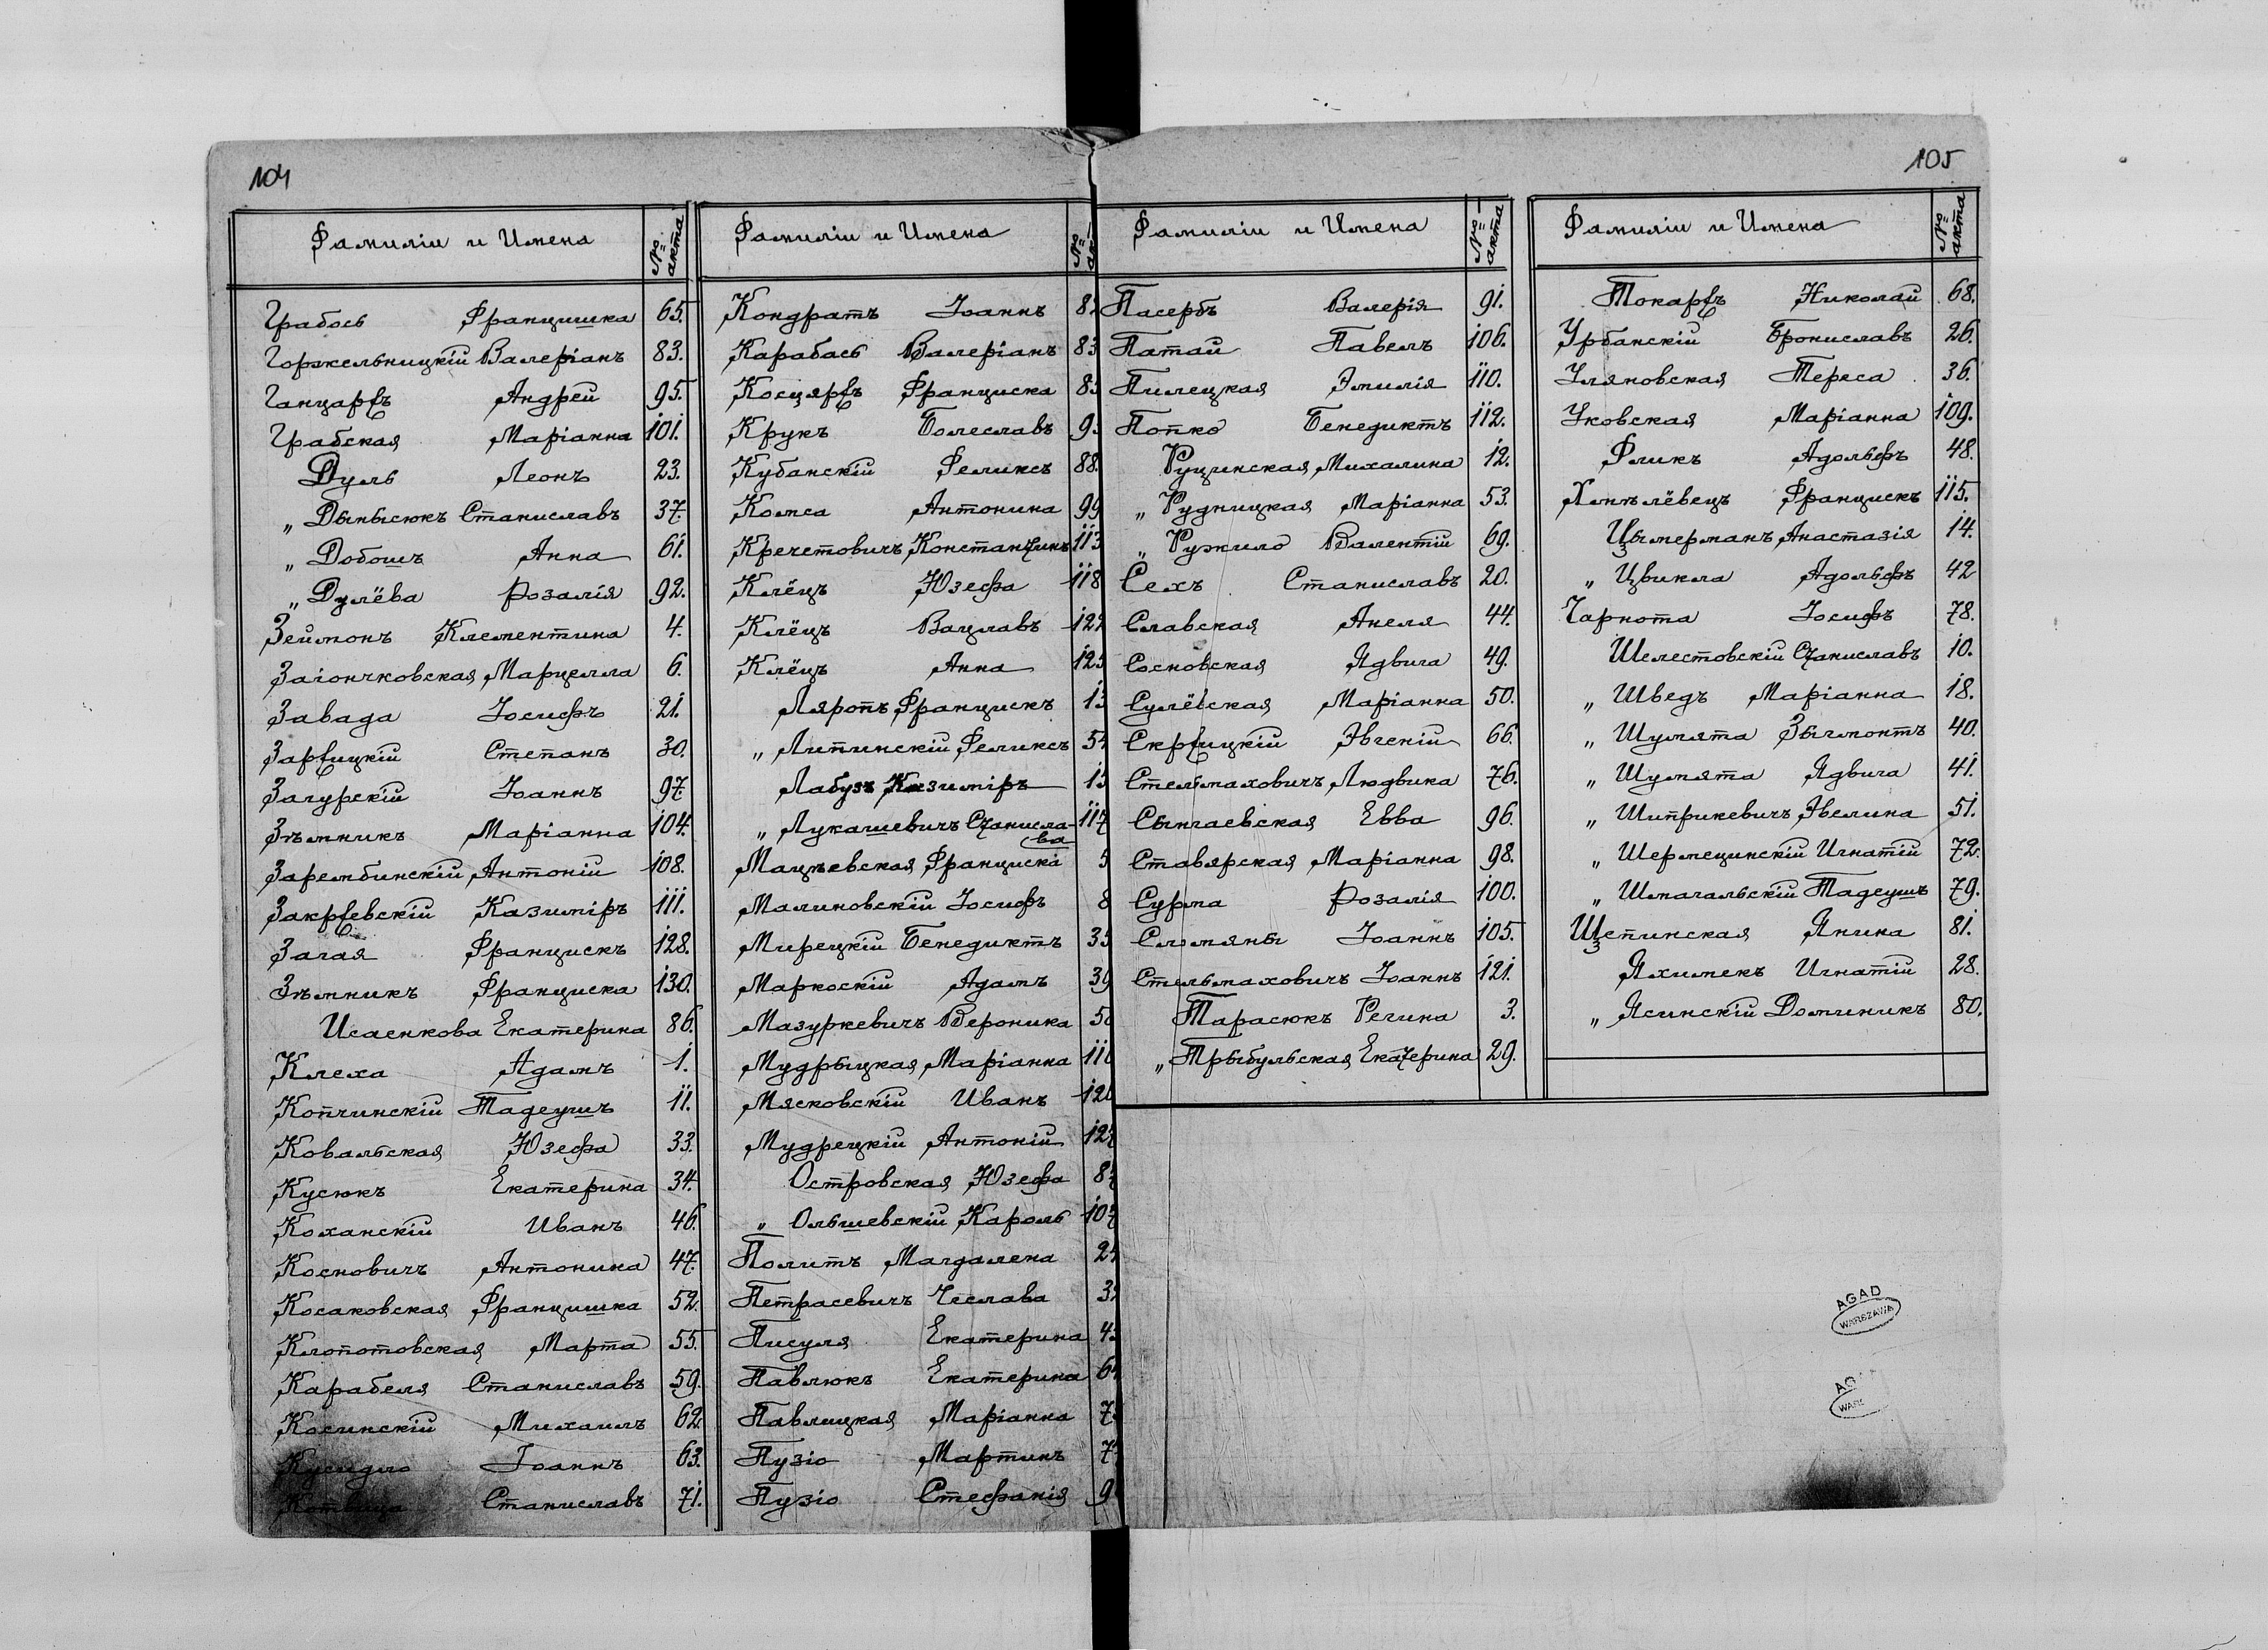 104
Фамиліи и Имена № акта
Грабось Францишка 65.
Горжельницкій Валеріанъ 83.
Ганцарfъ Андрей 95.
Грабская Маріанна 101.
Дуль Леонъ 23.
„ Дынысюкъ Станиславъ 37.
„ Добошъ Анна 61.
„ Дулёва Розалія 92.
Зеймонъ Клементина 4.
Заіончковская Марцелла 6.
Завада Іосифъ 21.
Зарfицкій Степанъ 30.
Загурскій Іоаннъ 97
Зѣмникъ Маріанна 104.
Зарембинскій Антоній 108.
Закрfевскій Казиміръ 111.
Загая Францискъ 128.
Зѣмникъ Франциска 130.
Исаенкова Екатерина 86.
Клеха Адамъ 1.
Копчинскій Тадеушъ 11.
Ковальская Юзефа 33.
Кусюкъ Екатерина 34.
Коханскій Иванъ 46.
Косновичъ Антонина 47.
Косаковская Францишка 52.
Клопотовская Марта 55.
Карабеля Станиславъ 59.
Косинскій Михаилъ 62
Кусидло Іоаннъ 63.
Станиславъ 71.
Фамиліи и Имена №
Кондратъ Іоаннъ
Карабась Валеріанъ
Косцярfъ Франциска
Крукъ Болеславъ
Кубанскій Феликсъ 88.
Комса Антонина 99
Кречетовичъ Константинъ 113
Клёцъ Юзефа 118
Клёцъ Вацлавъ
Клёцъ Анна
Ляропъ Францискъ
„ Липинскій Феликсъ
Лабузъ Казиміръ
„ Лукашевичъ Станисла-
ва 117
Мацѣевская Франциска
Малиновскій Іосифъ
Мирецкій Бенедиктъ
Маркоскій Адамъ 39
Мазуркевичъ Вероника
Мудрыцкая Маріанна
Мясковскій Иванъ
Мудрецкій Антоній
Островская Юзефа
„ Ольшевскій Кароль
Политъ Магдалена
Петрасевичъ Чеслава
Писуля Екатерина
Павлюкъ Екатерина
Павлицкая Маріанна
Пузіо Мартинъ
Пузіо Стефанія
105
Фамиліи и Имена № акта
Пасербъ Валерія 91.
Патай Павелъ 106.
Пилецкая Эмилія 110.
Попко Бенедиктъ 112.
Руцинская Михалина 12.
„ Рудницкая Маріанна 53.
„ Ружило Валентій 69.
Сехъ Станиславъ 20.
Славская Анеля 44.
Сосновская Ядвига 49.
Сулёвская Маріанна 50.
Скрfицкій Эвгеній 66.
Стельмаховичъ Людвика 76.
Сынгаевская Евва 96.
Ставярская Маріанна 98.
Сурма Розалія 100.
Сломяны Іоаннъ 105.
Стельмаховичъ Іоаннъ 121.
Тарасюкъ Регина 3.
„ Трыбульская Екатерина 29.
Фамиліи и Имена № акта
Токарfъ Николай 68.
Урбанскій Брониславъ 26.
Уляновская Тереса 36.
Уковская Маріанна 109.
Фликъ Адольфъ 48.
Хмѣлёвецъ Францискъ 115.
Цымерманъ Анастазія 14.
„ Цвикла Адольфъ 42
Чарнота Іосифъ 78.
Шелестовскій Станиславъ 10.
„ Шведъ Маріанна 18.
„ Шумята Зыгмонтъ 40.
„ Шумята Ядвига 41.
„ Шиприкевичъ Эвелина 51.
„ Шермецинскій Игнатій 72.
„ Шмагальскій Тадеушъ 79.
Щепинская Янина 81.
Яхимекъ Игнатій 28.
„ Ясинскій Доминикъ 80.
AGAD
WARSZAWA